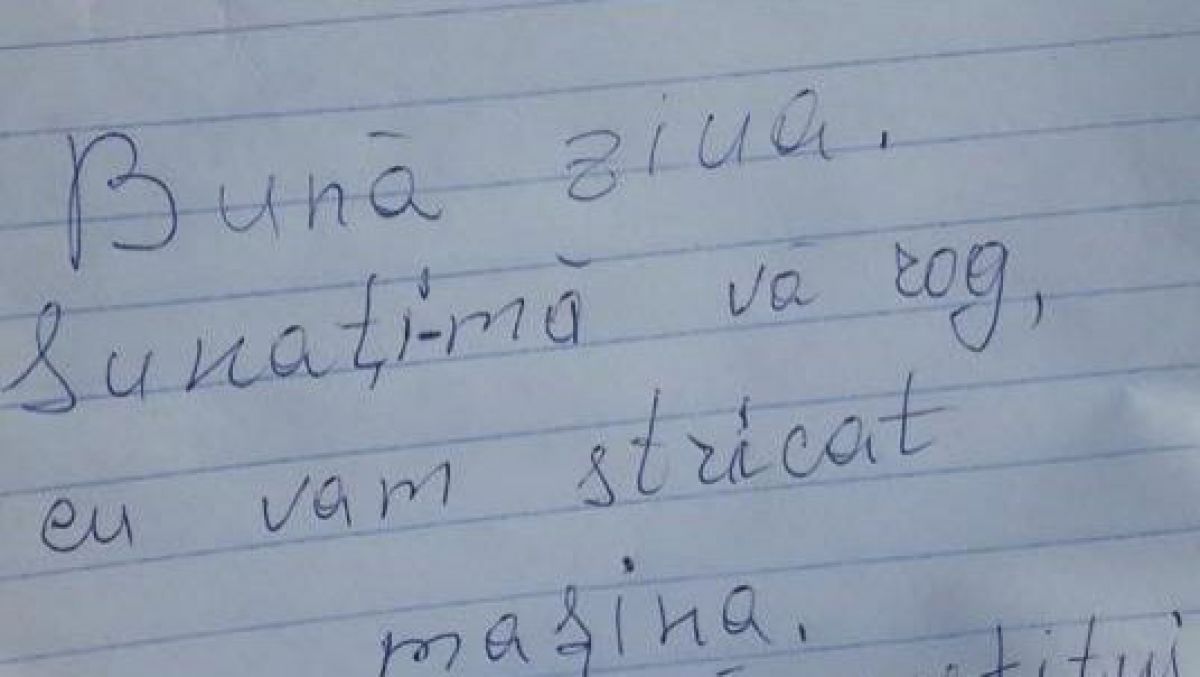 Bună ziua.
Sunați-mă vă rog,
eu vam stricat
mașina.